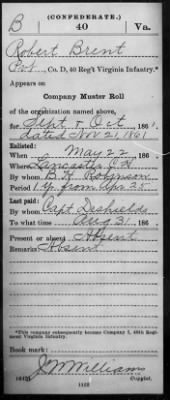 (CONFEDERATE.)
B 40 Va.
Robert Brent
Pvt, Co. D, 40 Reg't Virginia Infantry.*
Appears on
Company Muster Roll
of the organization named above,
for Sept & Oct, 1861.
dated Nov 21, 1861
Enlisted:
When May 22, 186 .
Where Lancaster C.H.
By whom B. H. Robinson
Period 1 yr. from Apr 25
Last paid:
By whom Capt Deshields
To what time Aug 31, 186 .
Present or absent Absent
Remarks: Absent
*This company subsequently became Company 40th Regiment Virginia Infantry.
Book mark:
J W Williams
(642) Copyist.